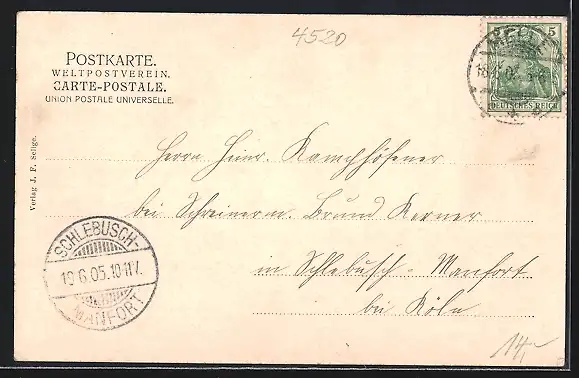 4520
POSTKARTE.
WELTPOSTVEREIN.
CARTE-POSTALE.
UNION POSTALE UNIVERSELLE.
5
DEUTSCHES REICH
Verlag J. F. Sellge.
Herrn Heinr. Kamphöfener
bei Schreinerm. Brund Kerner
in Schlebusch-Manfort
bei Köln
SCHLEBUSCH-
19.6.05.10-11V.
MANFORT
14,-